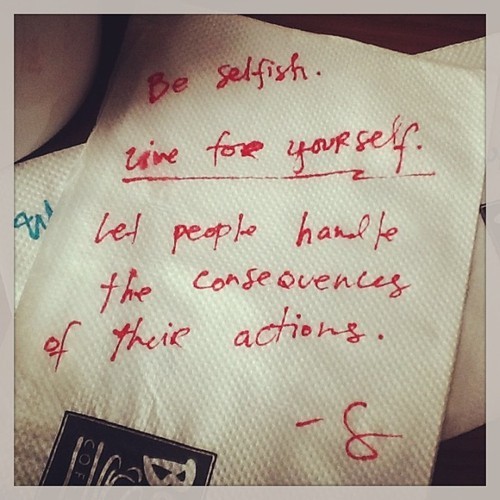 Be selfish.
Live for yourself.
Let people handle
the consequences
of their actions.
- S